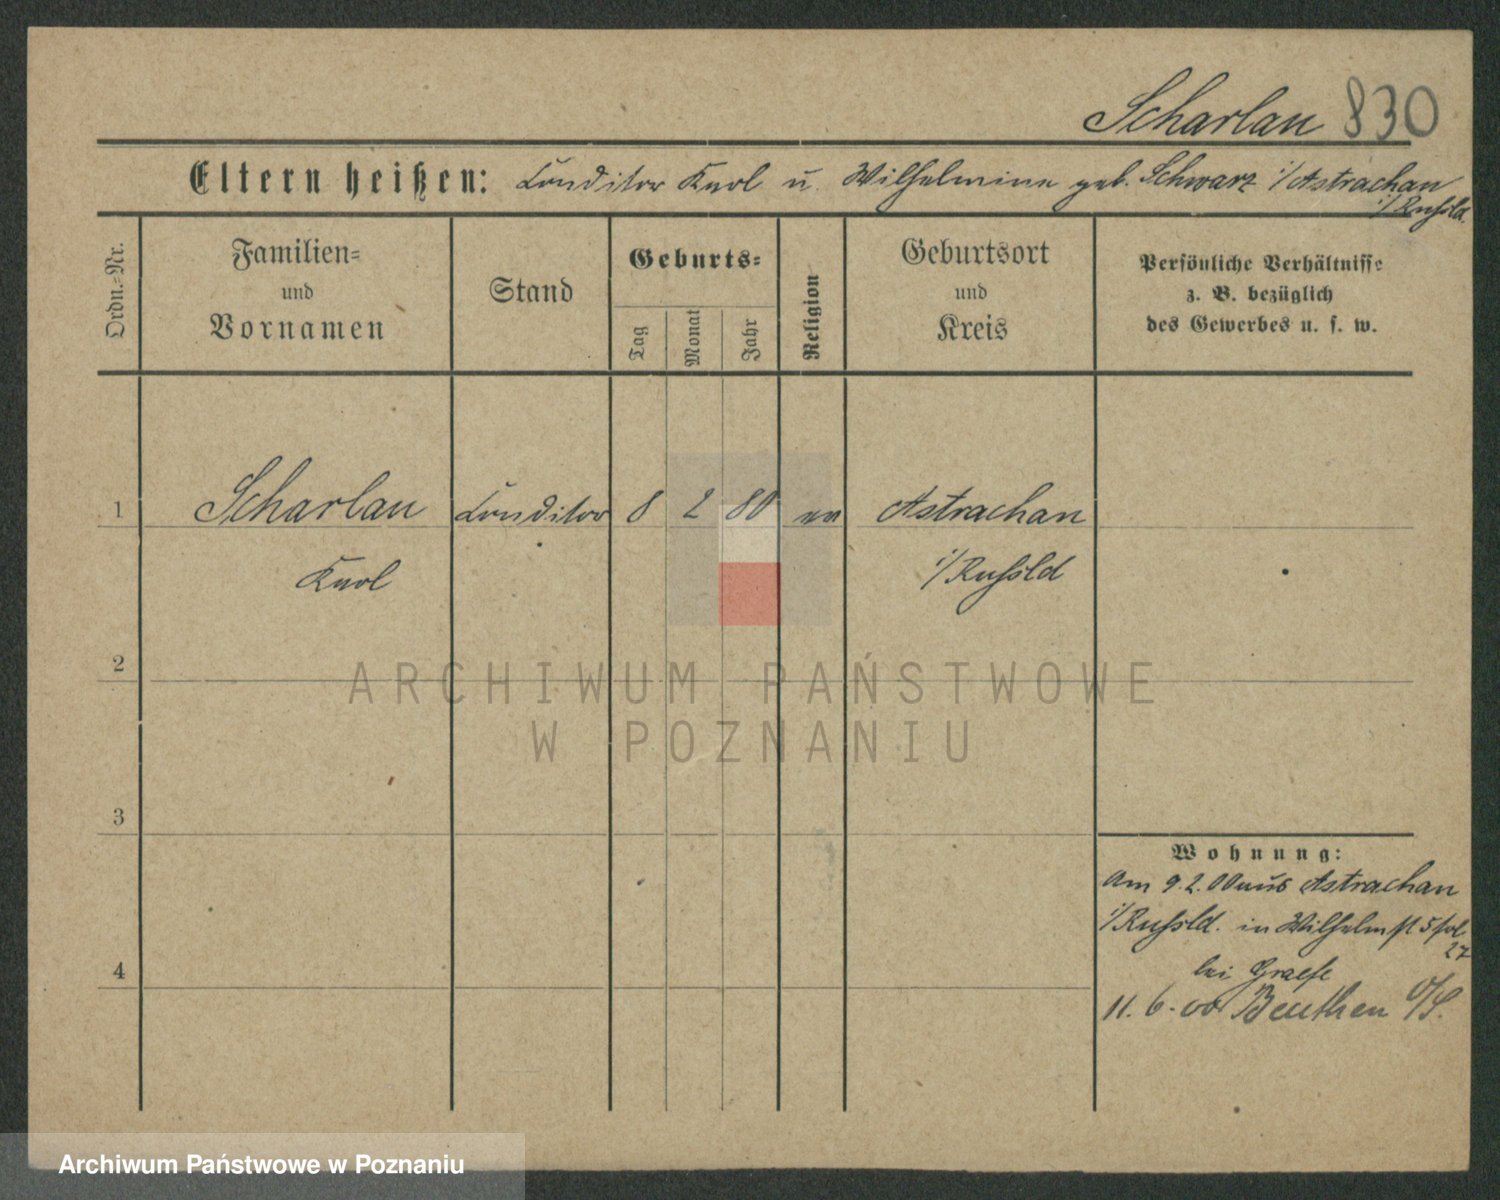 Scharlau 830
Eltern heißen: Conditor Karl u. Wilhelmine geb. Schwarz i/Astrachan
i/Rußld.
Ordn.-Nr.
Familien-
und
Vornamen
Stand
Geburts-
Tag
Monat
Jahr
Religion
Geburtsort
und
Kreis
Persönliche Verhältnisse
z. B. bezüglich
des Gewerbes u. s. w.
1 Scharlau Conditor 8 2 80 ev Astrachan
Karl i/Rußld
2
3
4
Wohnung:
Am 9.2.00 aus Astrachan
i/Rußld. in Wilhelmst 5
27
bei Graefe
11.6.00 Beuthen O/S.
ARCHIWUM PAŃSTWOWE
W POZNANIU
Archiwum Państwowe w Poznaniu